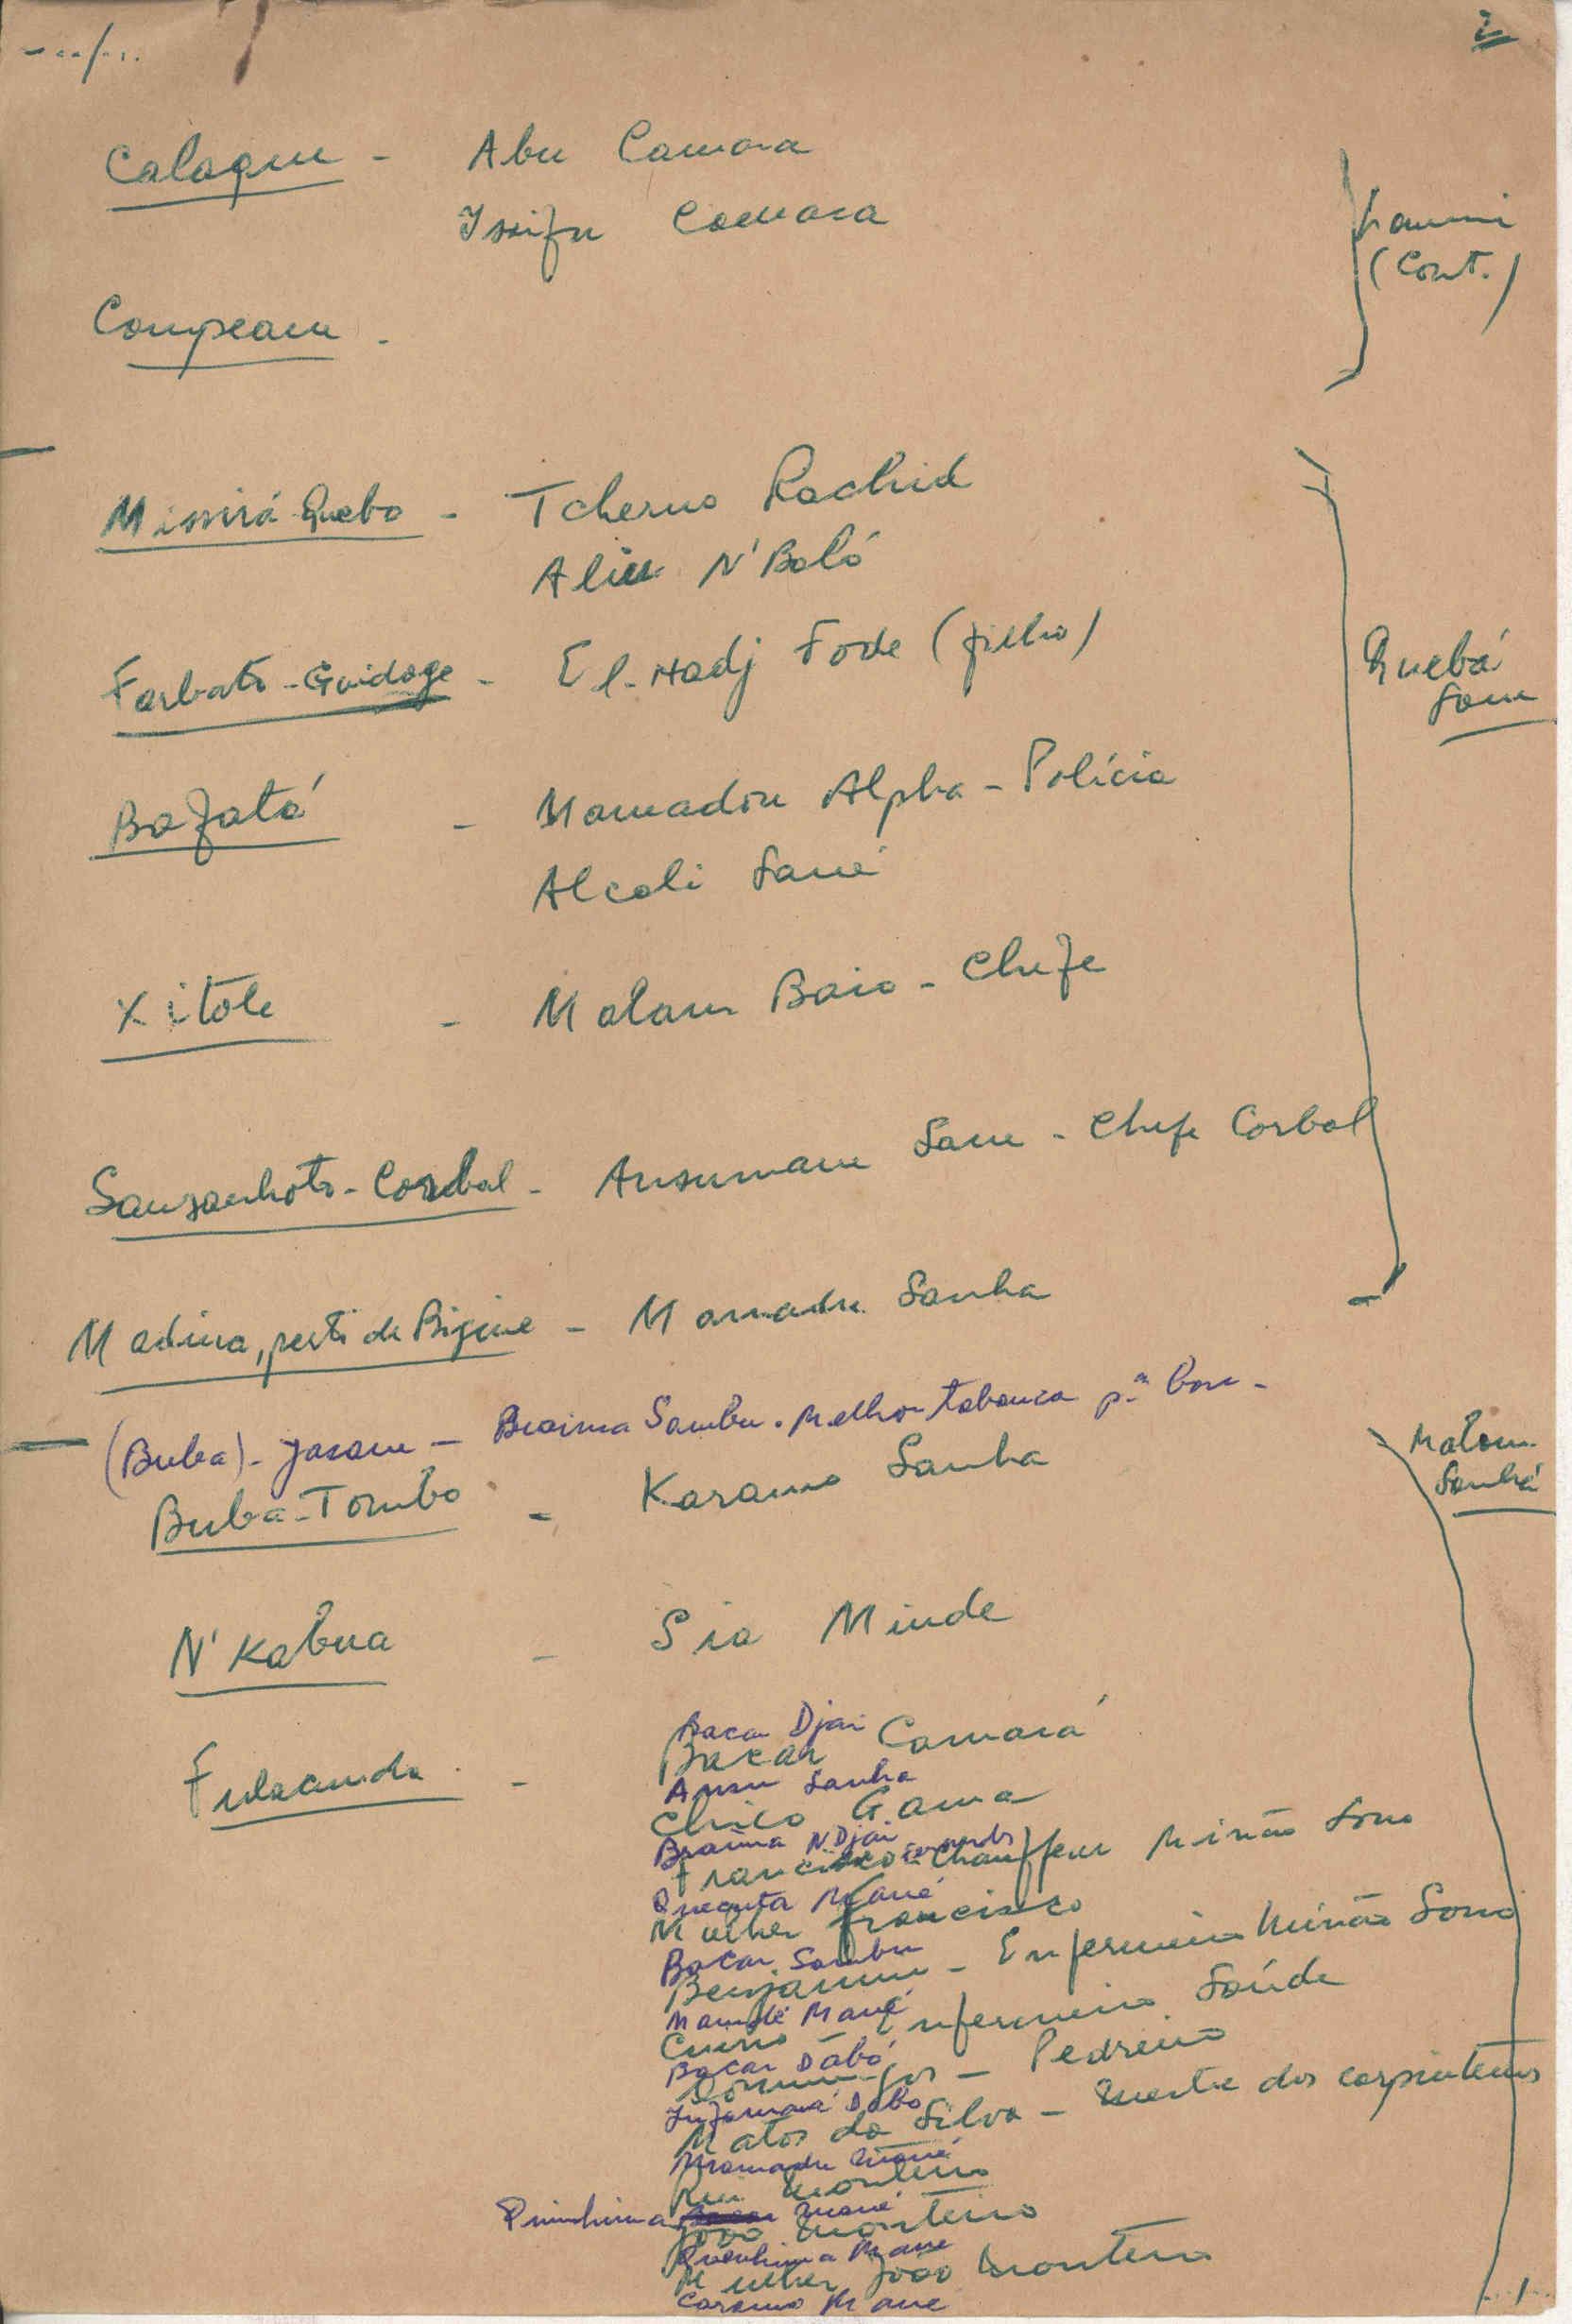 2
Calaque - Abu Camara
Issifu Camara
(Cont.)
Compeane -
Missirá Quebo - Tcherno Rachid
Aliu N'Baló
Farbato - Guidage - El-Hadj Fode (filho)
Quebá
Sane
Bafatá - Mamadou Alpha - Polícia
Alcali Sané
Xitole - Malam Baio - Chefe
Sansanhoto - Corbal - Ansumane Sane - Chefe Corbal
Madina, perto de Bigine - Mamadu Sanha
(Buba) - Jassane - Braima Sambu. Melhor tabanca p.ª
Malam
Sanhá
Buba-Tombo - Karamo Sanha
N'Kabua - Sia Minde
Bacar Djai
Fulacunda - Bacar Camará
Ansu Sanha
Chico Gama
Braima N'Djai
Francisco Fernandes - Chauffeur Missão Sono
Quecuta Mané
Mulher Francisco
Bacar Sambu
Benjamim - Enfermeiro Missão Sono
Mané
- Enfermeiro Saúde
Bacar Dabó
Domingos - Pedreiro
Infamará Dabo
Matos da Silva - Mestre dos carpinteiros
Mamadu Mané
Rui Monteiro
Quinhima Mané
João Monteiro
Quenhima Mane
Mulher João Monteiro
Caramo Mane